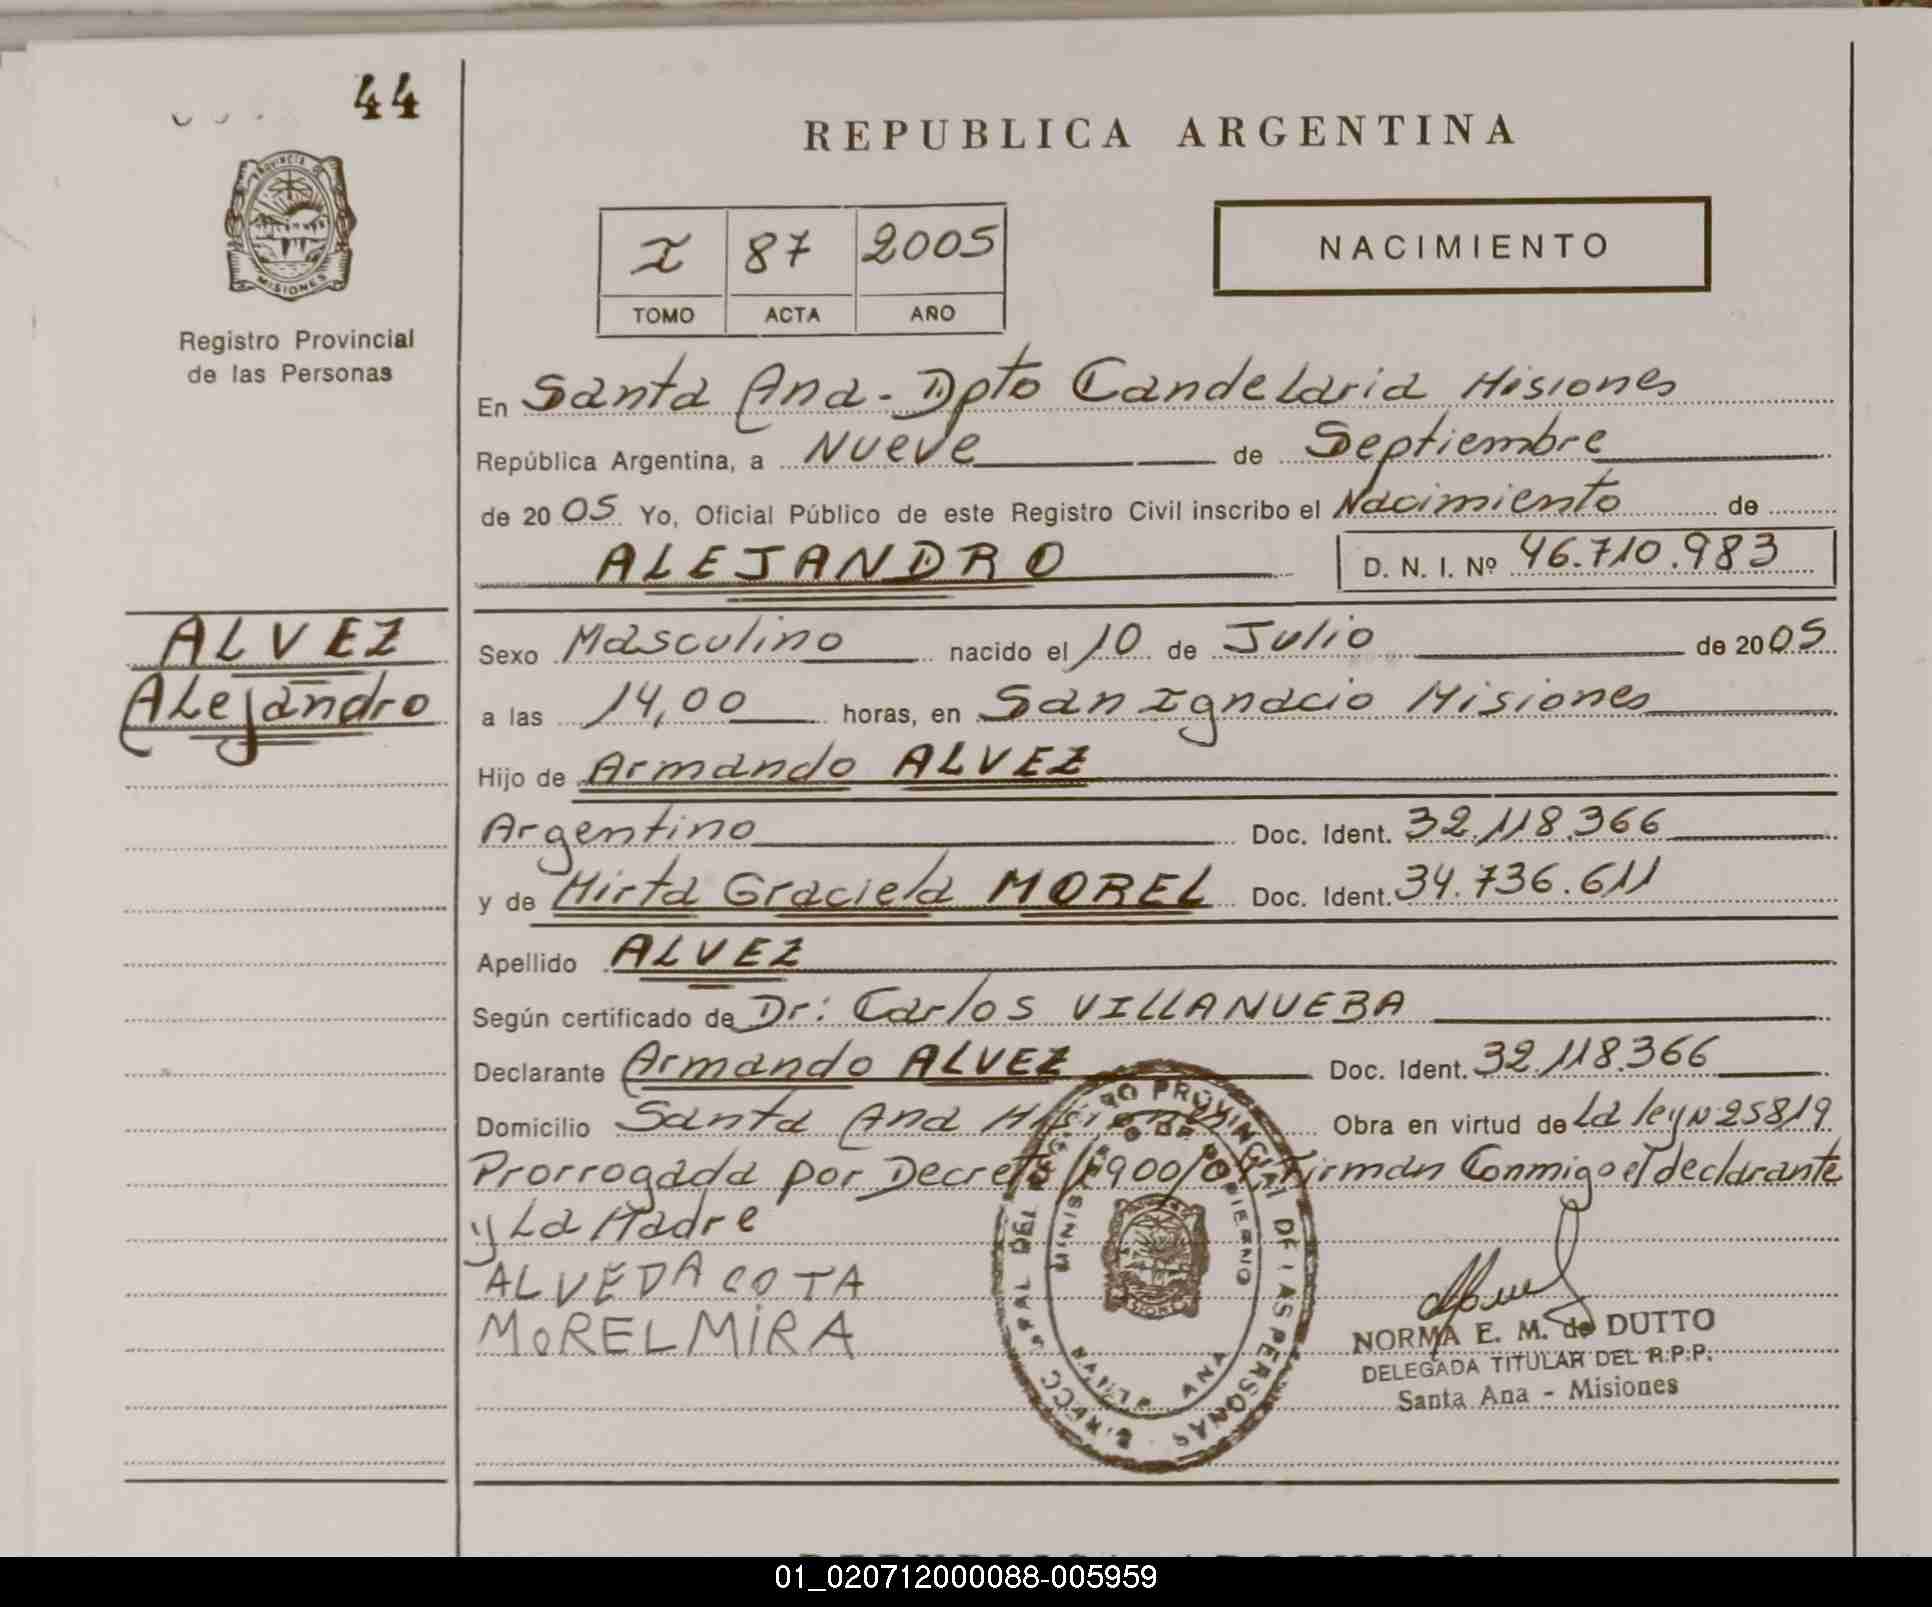 44
PROVINCIA DE
MISIONES
Registro Provincial
de las Personas
ALVEZ
Alejandro
REPUBLICA ARGENTINA
I 87 2005
TOMO ACTA AÑO
NACIMIENTO
En Santa Ana - Dpto Candelaria Misiones
República Argentina, a Nueve de Septiembre
de 2005 Yo, Oficial Público de este Registro Civil inscribo el Nacimiento de
ALEJANDRO D. N. I. Nº 46.710.983
Sexo Masculino nacido el 10 de Julio de 2005
a las 14,00 horas, en San Ignacio Misiones
Hijo de Armando ALVEZ
Argentino Doc. Ident. 32.118.366
y de Mirta Graciela MOREL Doc. Ident. 34.736.611
Apellido ALVEZ
Según certificado de Dr: Carlos VILLANUEBA
Declarante Armando ALVEZ Doc. Ident. 32.118.366
Domicilio Santa Ana Misiones Obra en virtud de la ley N 25819
Prorrogada por Decreto Firman Conmigo el declarante
y La Madre
ALVEDA COTA
MORELMIRA
NORMA E. M. de DUTTO
DELEGADA TITULAR DEL R.P.P.
Santa Ana - Misiones
01_020712000088-005959